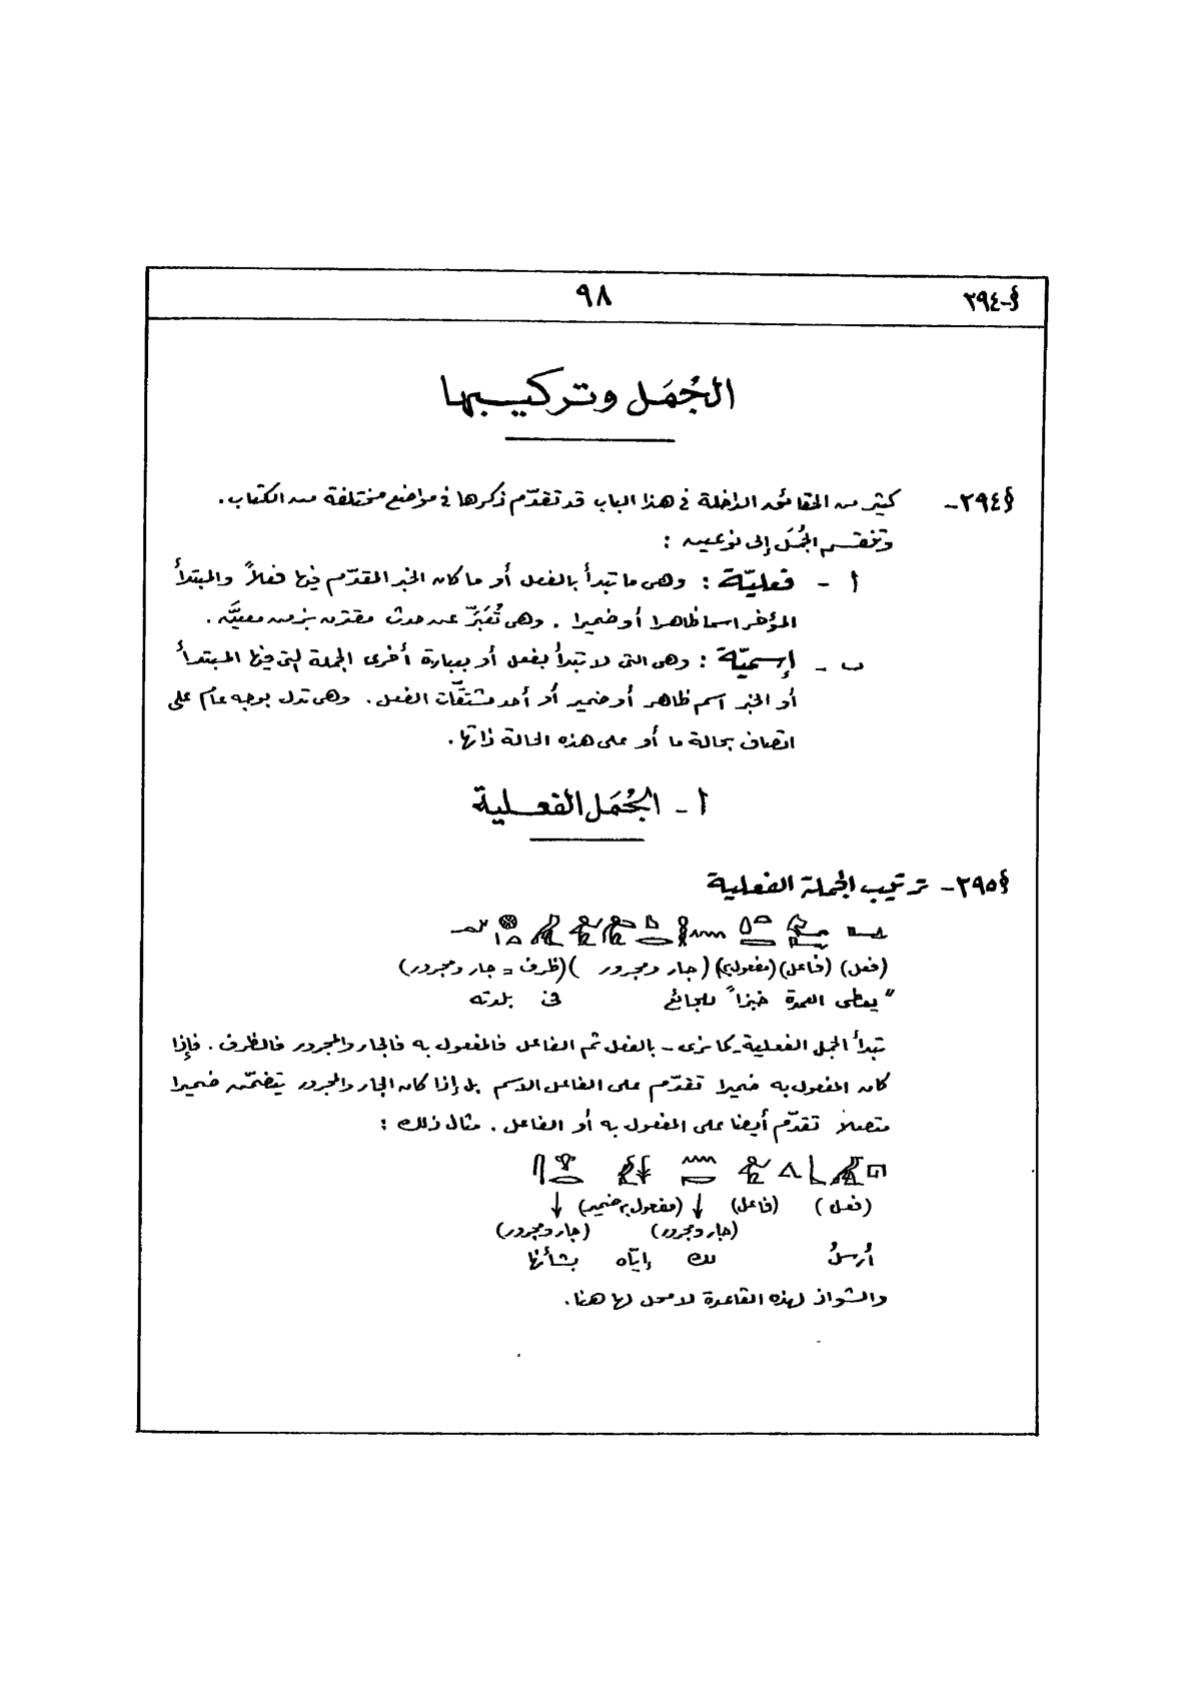 §-٢٩٤
٩٨
الجُمَل وتركيبها
§٢٩٤- كثير من الحقائق الداخلة فى هذا الباب قد تقدّم ذكرها فى مواضع مختلفة من الكتاب .
وتنقسم الجُمَل إلى نوعين :
أ - فعليّة : وهى ما تبدأ بالفعل أو ما كان الخبر المقدّم فيها فعلاً والمبتدأ
المؤخر اسما ظاهرا أو ضميرا . وهى تُعَبِّر عن حدث مقترن بزمن معيَّن .
ب - إسميّة : وهى التى لا تبدأ بفعل أو بعبارة أخرى الجملة التى فيها المبتدأ
أو الخبر اسم ظاهر أو ضمير أو أحد مشتقّات الفعل . وهى تدل بوجه عام على
اتصاف بحالة ما أو على هذه الحالة ذاتها .
أ - الجُمَل الفعلية
§٢٩٥- ترتيب الجملة الفعلية
(فعل) (فاعل) (مفعول به) (جار ومجرور) (ظرف = جار ومجرور)
" يعطى العمدة خبزاً للجائع فى بلدته
تبدأ الجمل الفعلية - كما نرى - بالفعل ثم الفاعل فالمفعول به فالجار والمجرور فالظرف . فإذا
كان المفعول به ضميرا تقدّم على الفاعل الاسم بل إذا كان الجار والمجرور يتضمّن ضميرا
متصلاً تقدّم أيضا على المفعول به أو الفاعل . مثال ذلك :
(فعل) (فاعل) ↓ (مفعول به ضمير) ↓
(جار ومجرور) (جار ومجرور)
أُرسلُ لك إيّاه بشأنها
والشواذ لهذه القاعدة لا محل لها هنا .